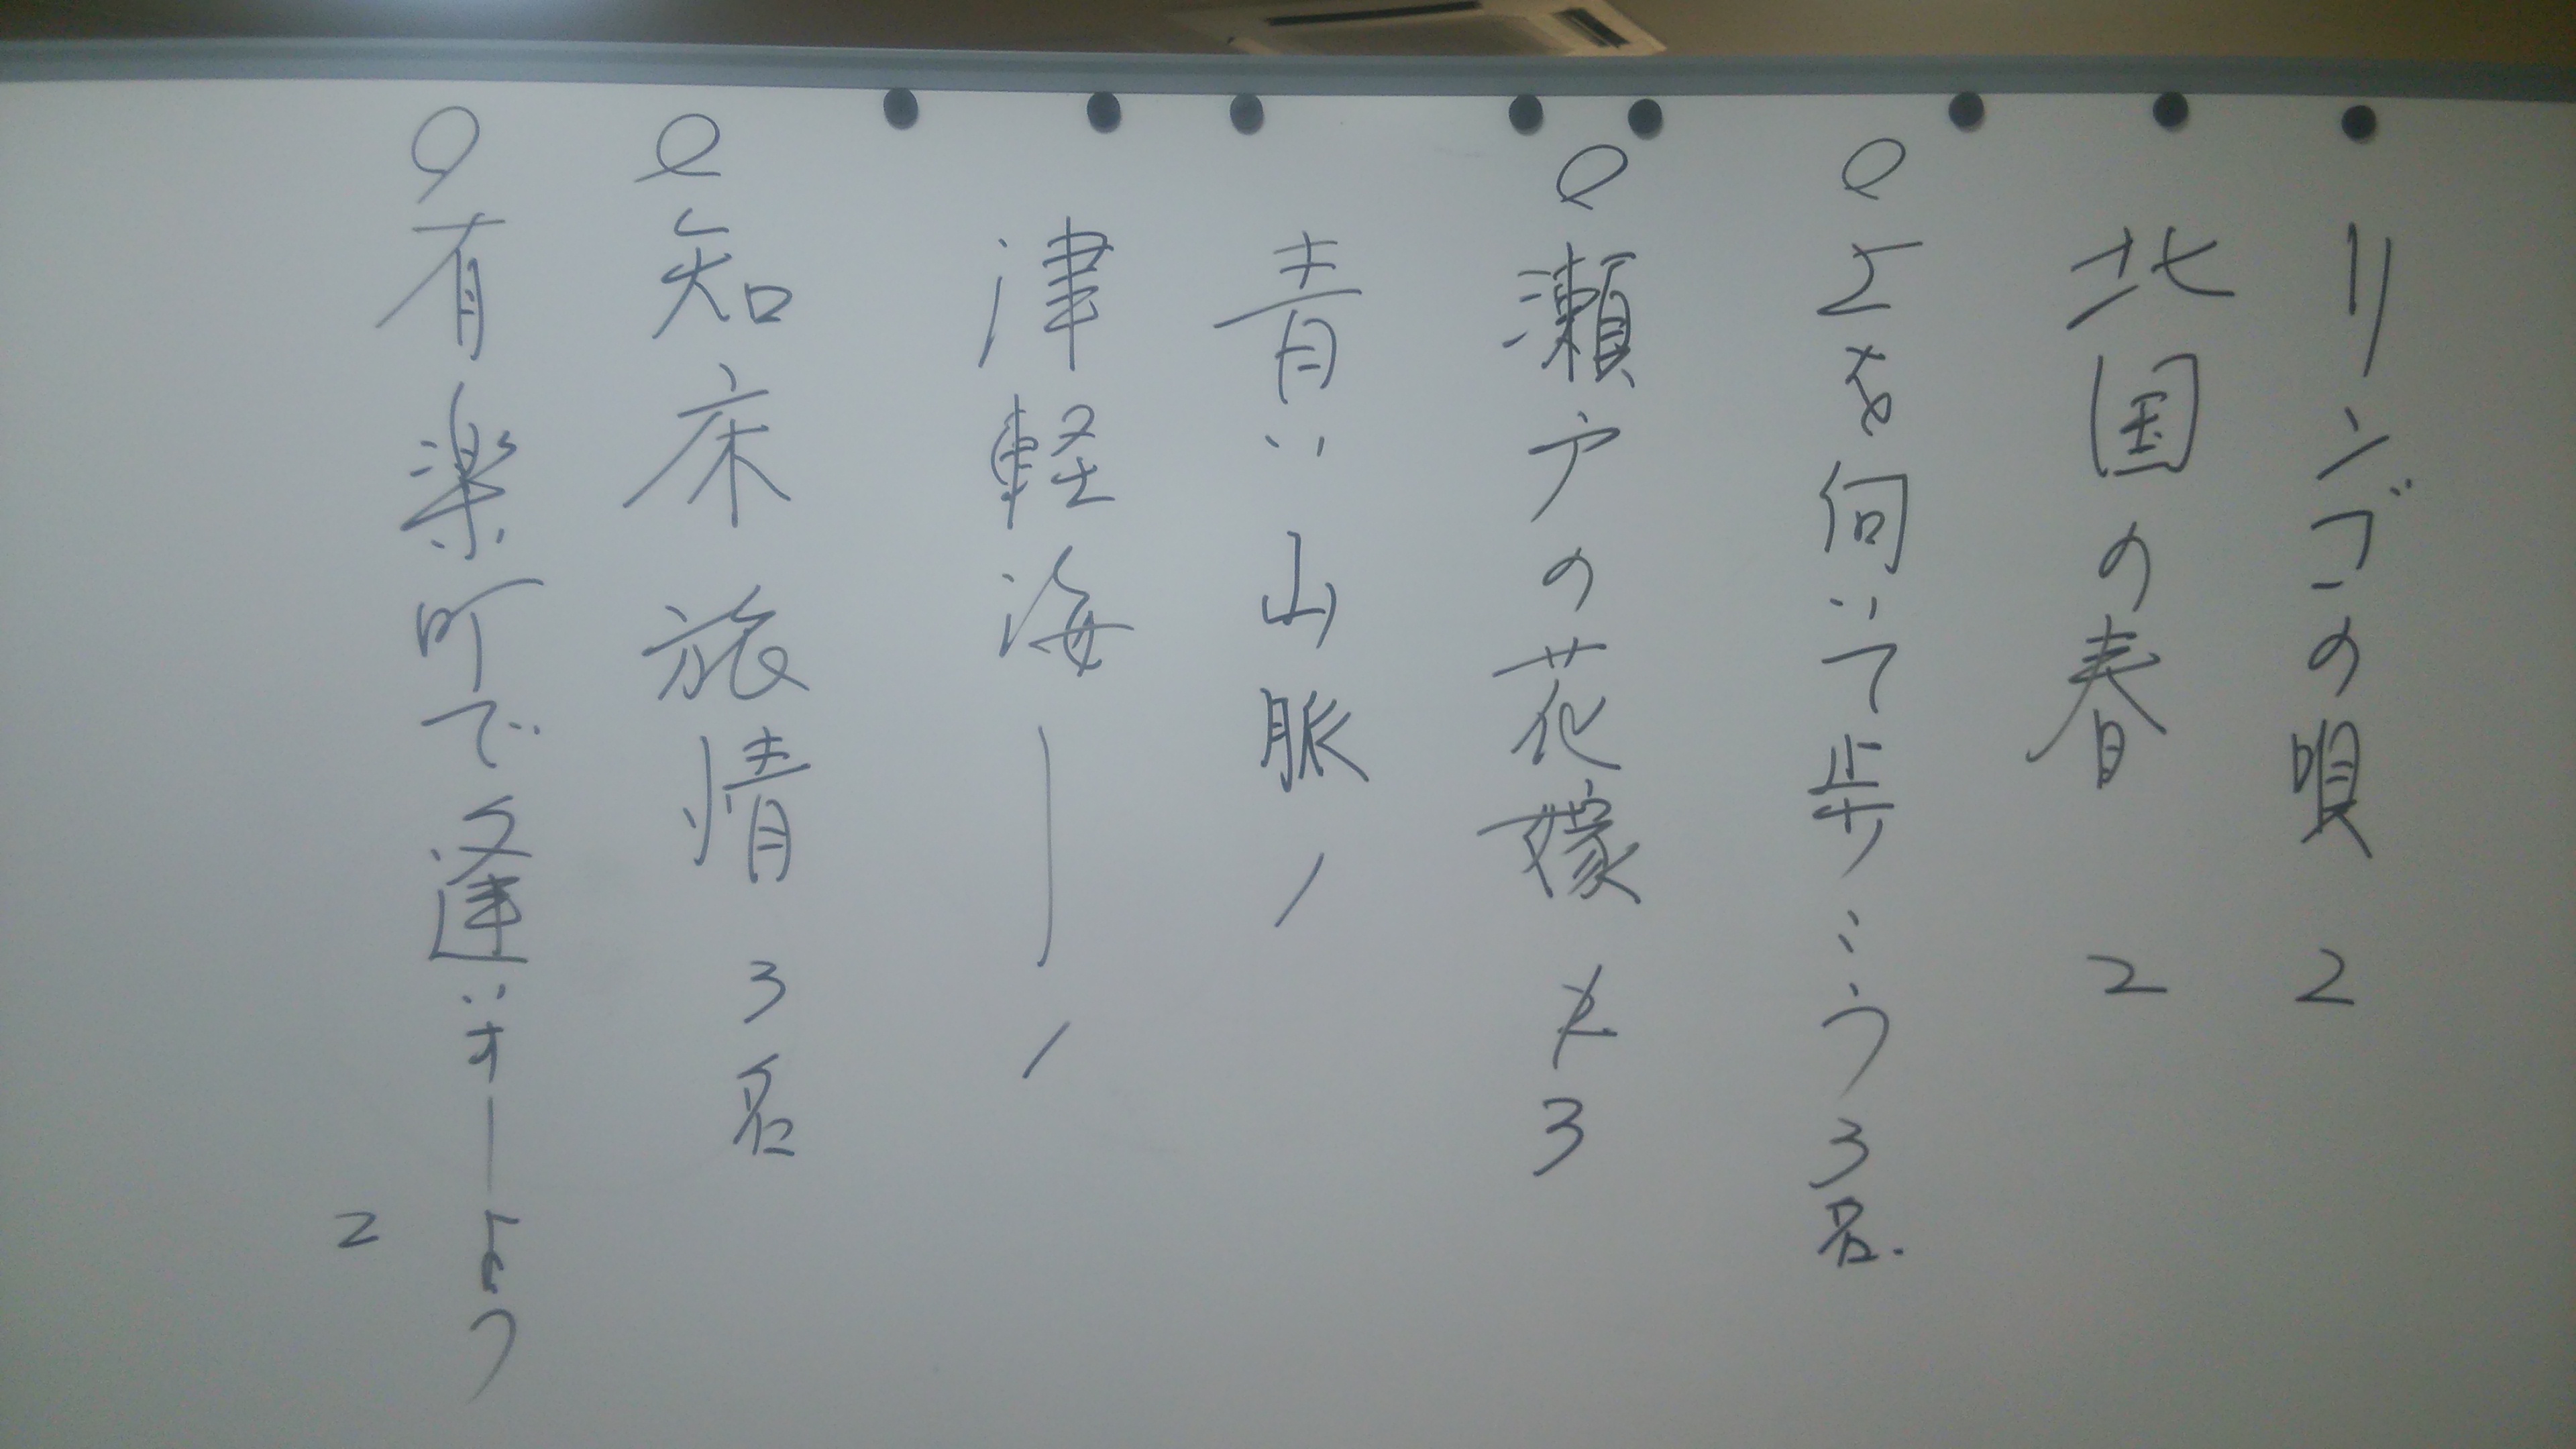 リンゴの唄 2
北国の春 2
○上を向いて歩こう 3名.
○瀬戸の花嫁 2 3
青い山脈 /
津軽海— /
○知床旅情 3名
○有楽町で逢いましょう 2